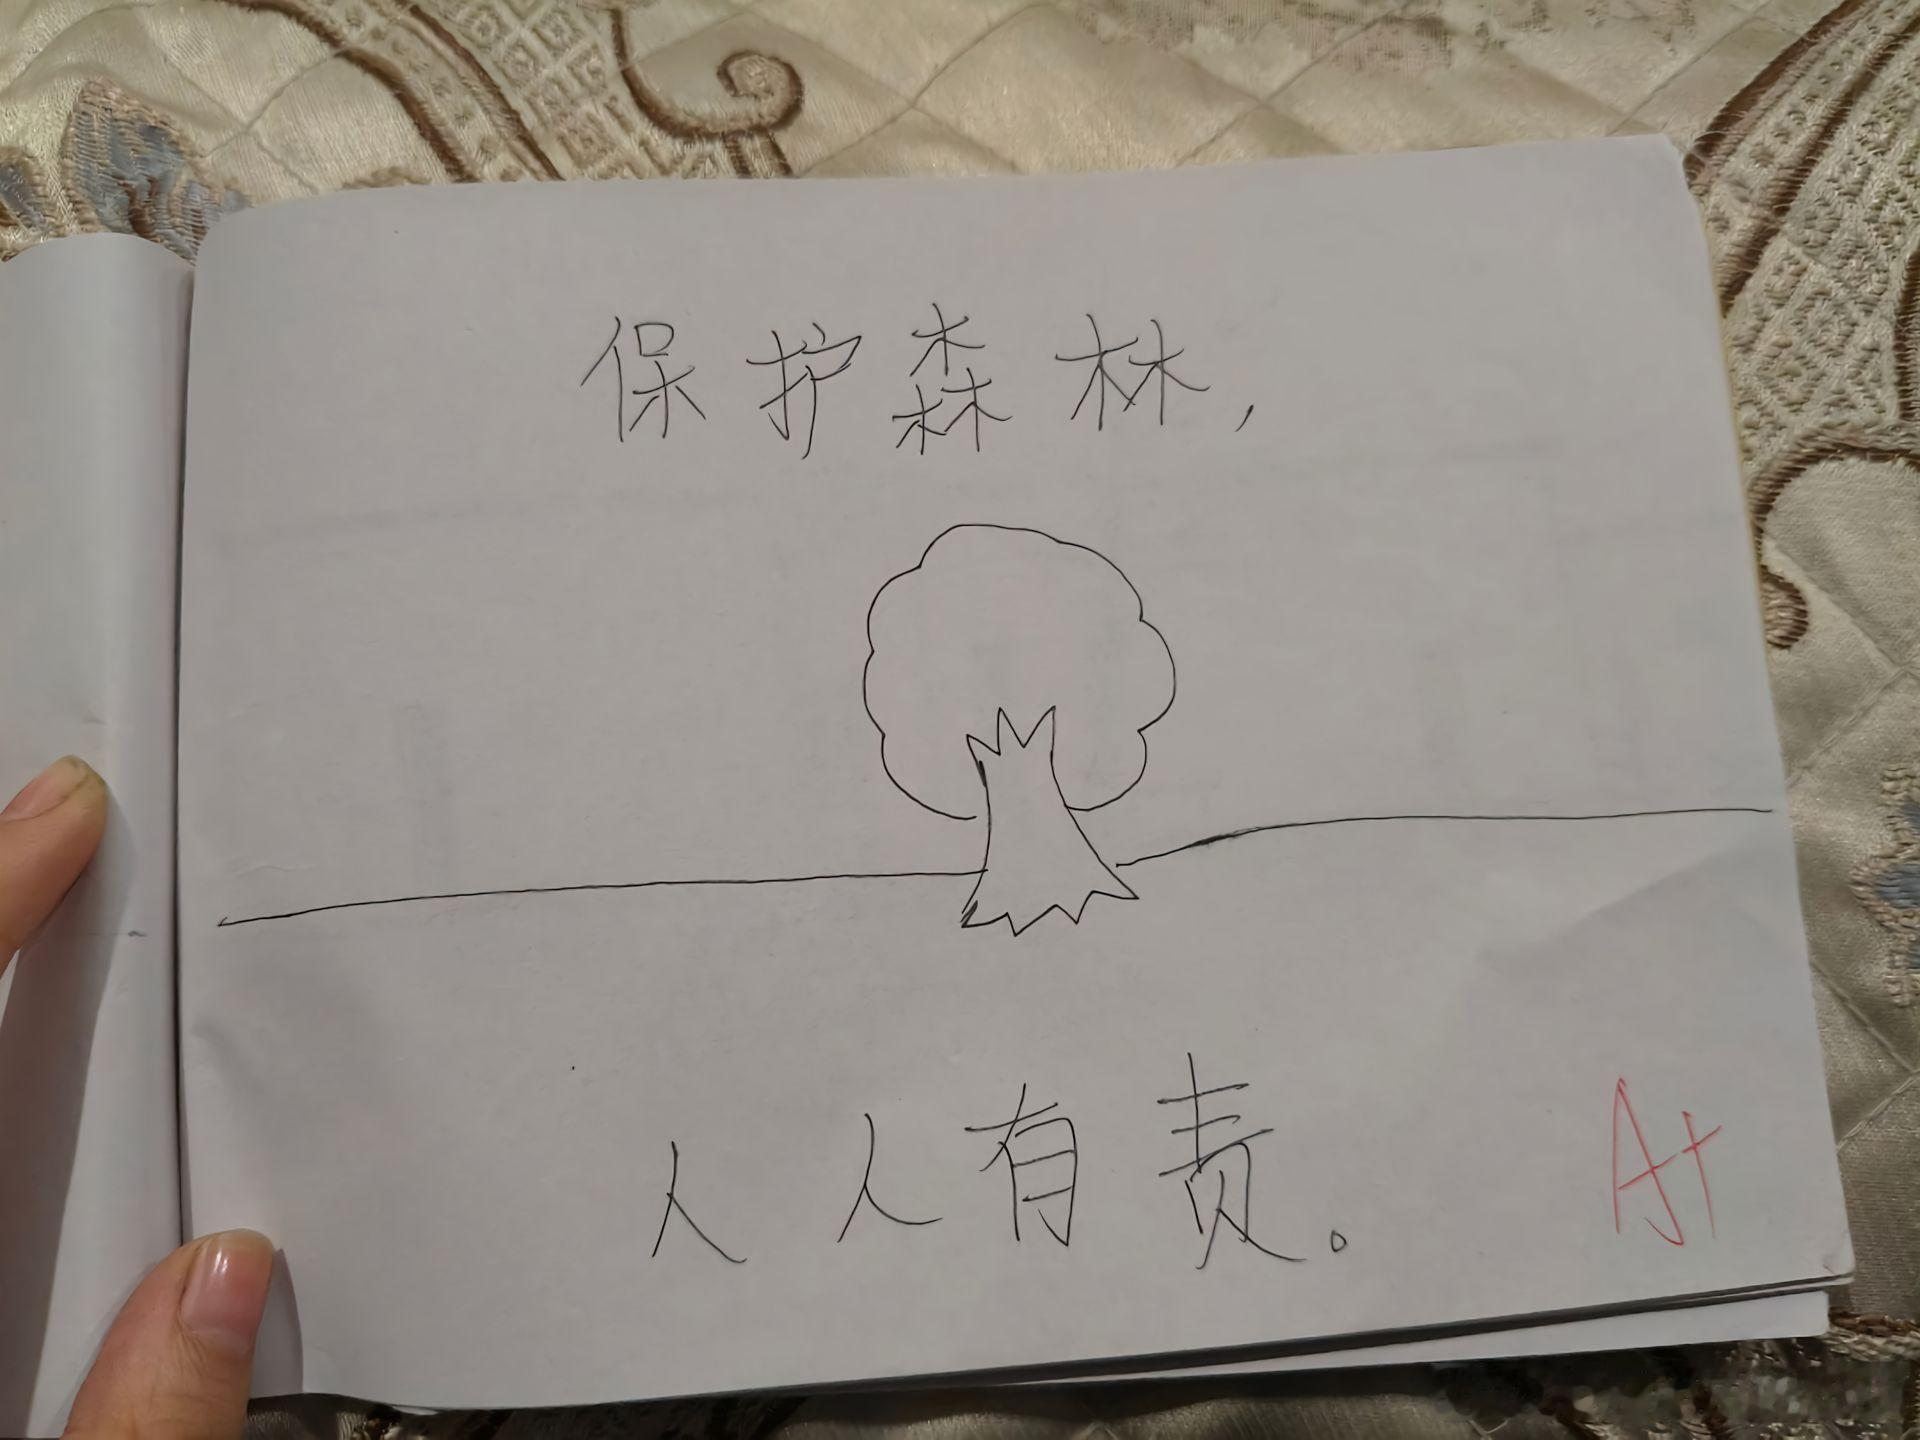 保护森林，
人人有责。
A+